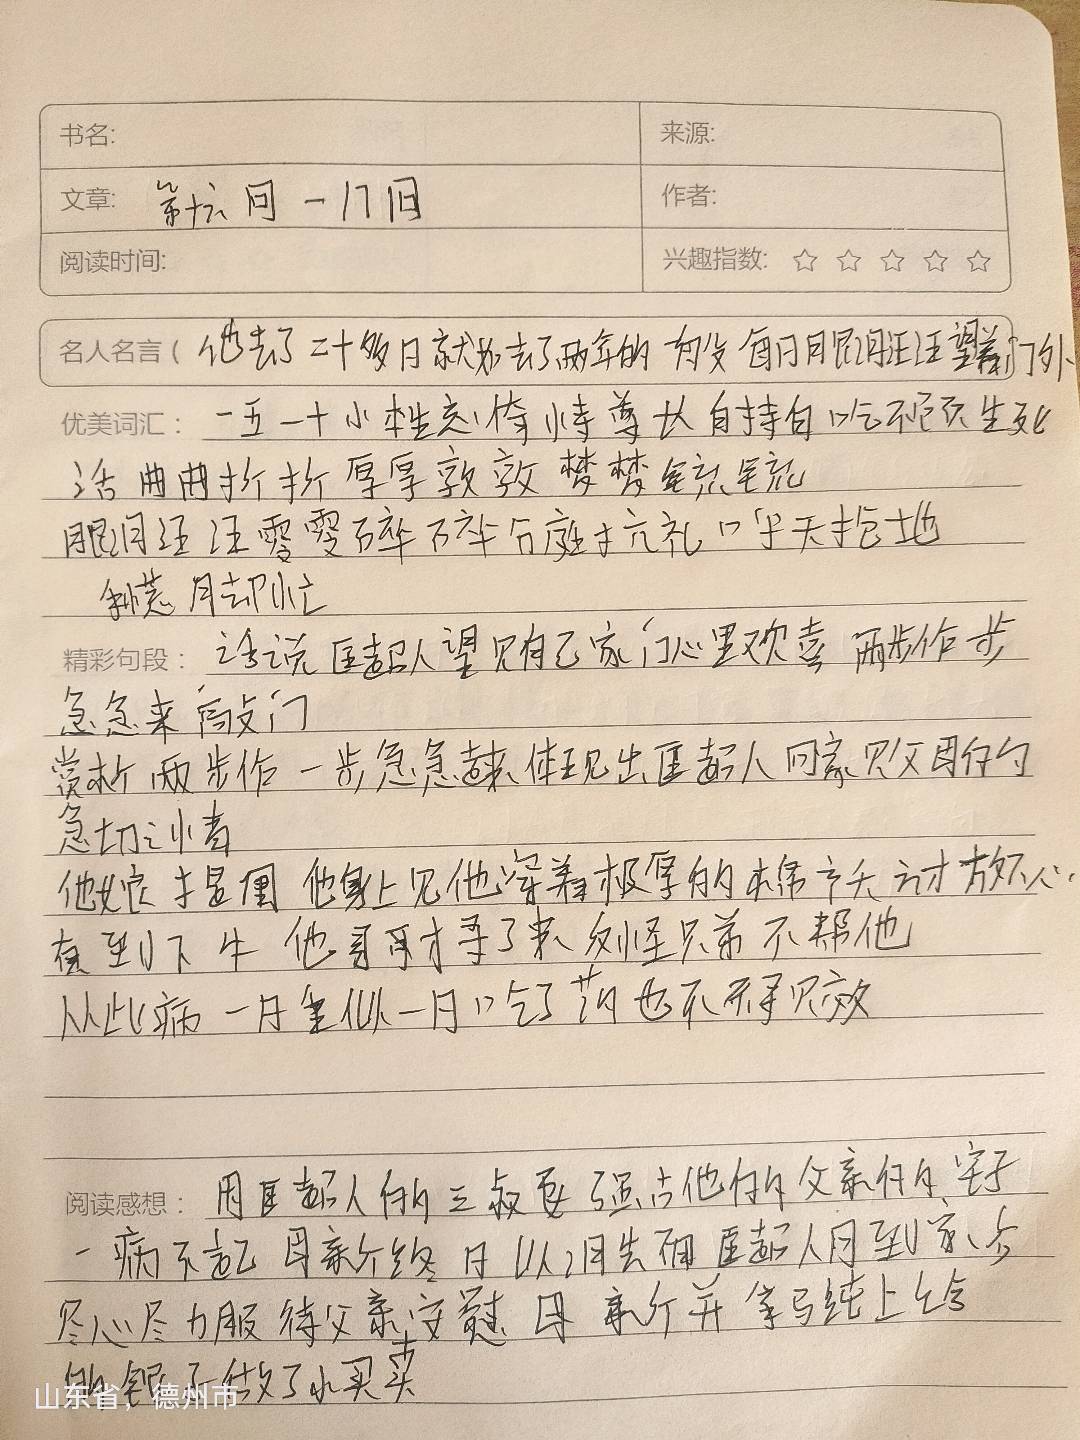 书名:
来源:
文章: 第十六回 一17旧
作者:
阅读时间:
兴趣指数: ☆ ☆ ☆ ☆ ☆
名人名言( 他去了二十多日就如去了两年的 每日眼泪汪汪望着门外
优美词汇: 一五一十 小性 倚恃尊长 自持自吃 不记死生
话 曲曲折折 厚厚敦敦 梦梦铳铳
眼泪汪汪 零零碎碎 分庭抗礼 呼天抢地
精彩句段: 话说匡超人望见自己家门心里欢喜 两步作一步
急急来敲门
赏析 两步作一步急急来体现出匡超人回家见父母的
急切之情
他娘捏一捏他身上见他穿着极厚的棉衣方才放下心
直到下午他哥才寻了来反怪兄弟不帮他
从此病一日重似一日吃了药也不得见效
阅读感想: 因匡超人的三叔要强占他的父亲的房子
一病不起 母亲终日以泪洗面 匡超人回到家
尽心尽力服侍父亲安慰母亲并拿马纯上给
的银子做了小买卖
山东省，德州市